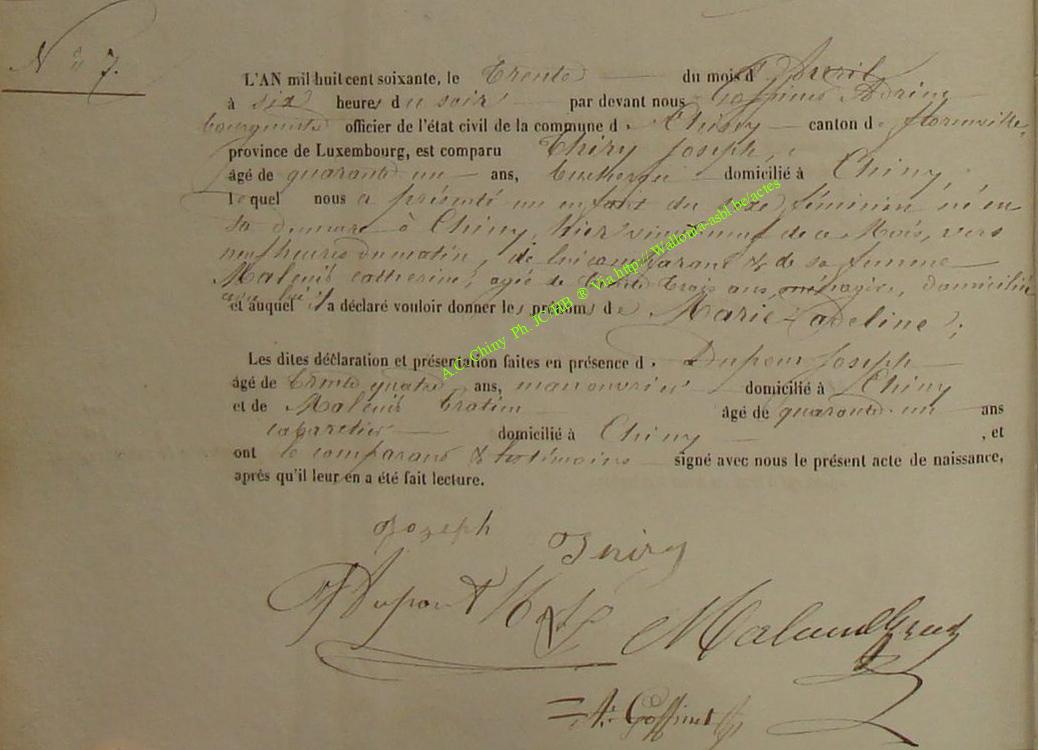 N° 7.
L'AN mil huit cent soixante, le trente du mois d'Avril
à six heures du soir par devant nous Goffinet Adrien
bourgmestre officier de l'état civil de la commune de Chiny canton de florenville,
province de Luxembourg, est comparu Thiry Joseph,
âgé de quarante un ans, domicilié à Chiny,
lequel nous a présenté un enfant du sexe féminin né en
sa demeure à Chiny, hier vingt neuf de ce Mois, vers
neuf heures du matin, de lui comparant & de sa femme
catherine, agée de trente trois ans ménagère, domiciliée
avec lui
et auquel il a déclaré vouloir donner les prénoms de Marie-adeline;
Les dites déclaration et présentation faites en présence de Dupont Joseph
âgé de trente quatre ans, manouvrier domicilié à Chiny
et de âgé de quarante un ans
cabaretier domicilié à Chiny, et
ont le comparant & les témoins signé avec nous le présent acte de naissance,
après qu'il leur en a été fait lecture.
Joseph Thiry
Dupont
A. Goffinet
A.C. Chiny Ph. JC HB ® Via http://Wallonia-asbl.be/actes